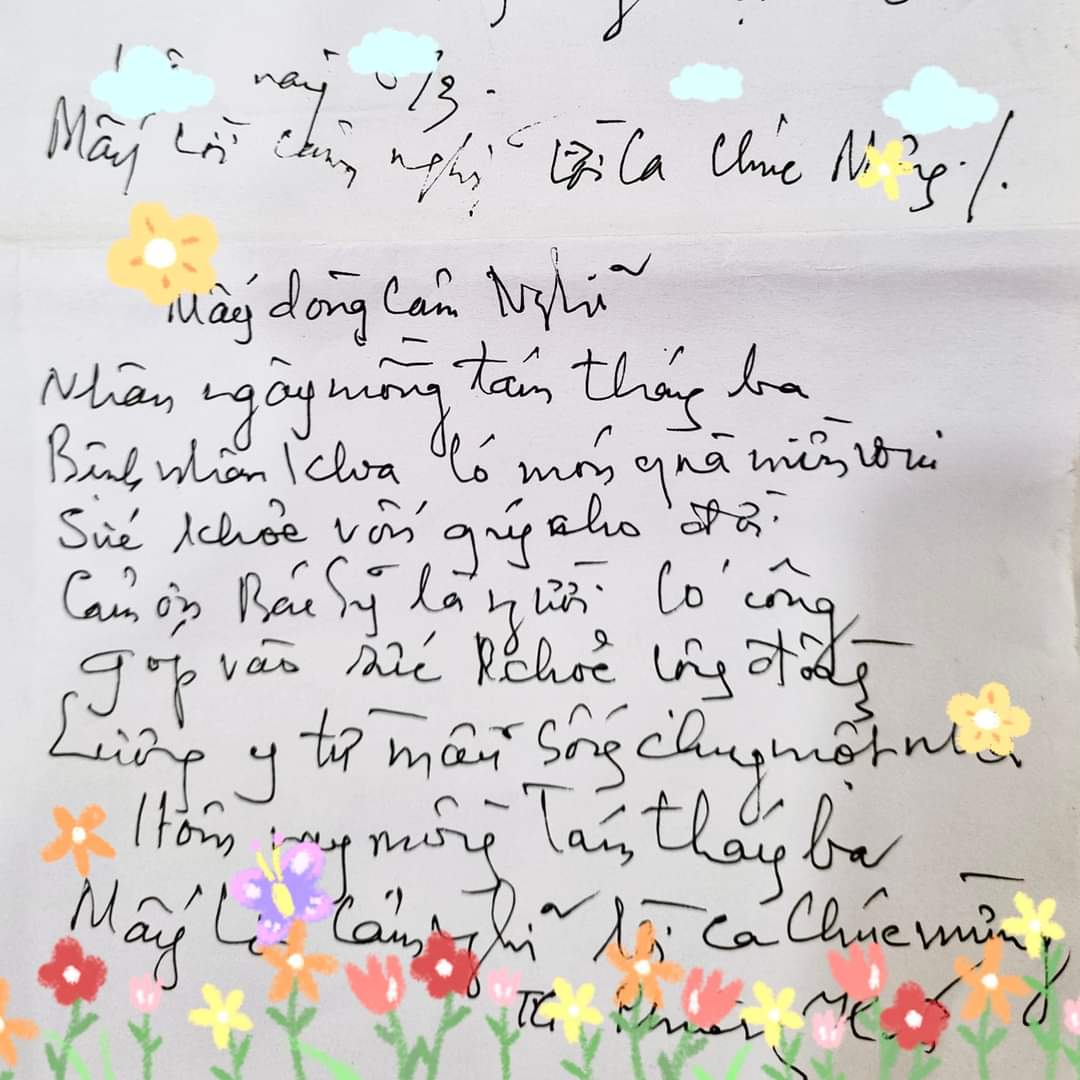 nay 8/3.
Mấy lời cảm nghĩ lời ca chúc Mừng./.
Mấy dòng Cảm Nghĩ
Nhân ngày mồng tám tháng ba
Bệnh nhân khoa có món quà mừng vui
Sức khỏe vốn quý cho đời
Cảm ơn Bác Sỹ là người có công
góp vào sức khỏe cộng đồng
Lương y từ mẫu sống chung một nhà
Hôm nay mồng Tám tháng ba
Mấy lời cảm nghĩ lời ca chúc mừng
TG